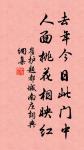 去年今日此门中
人面桃花相映红
崔护题都城南庄词典
网集